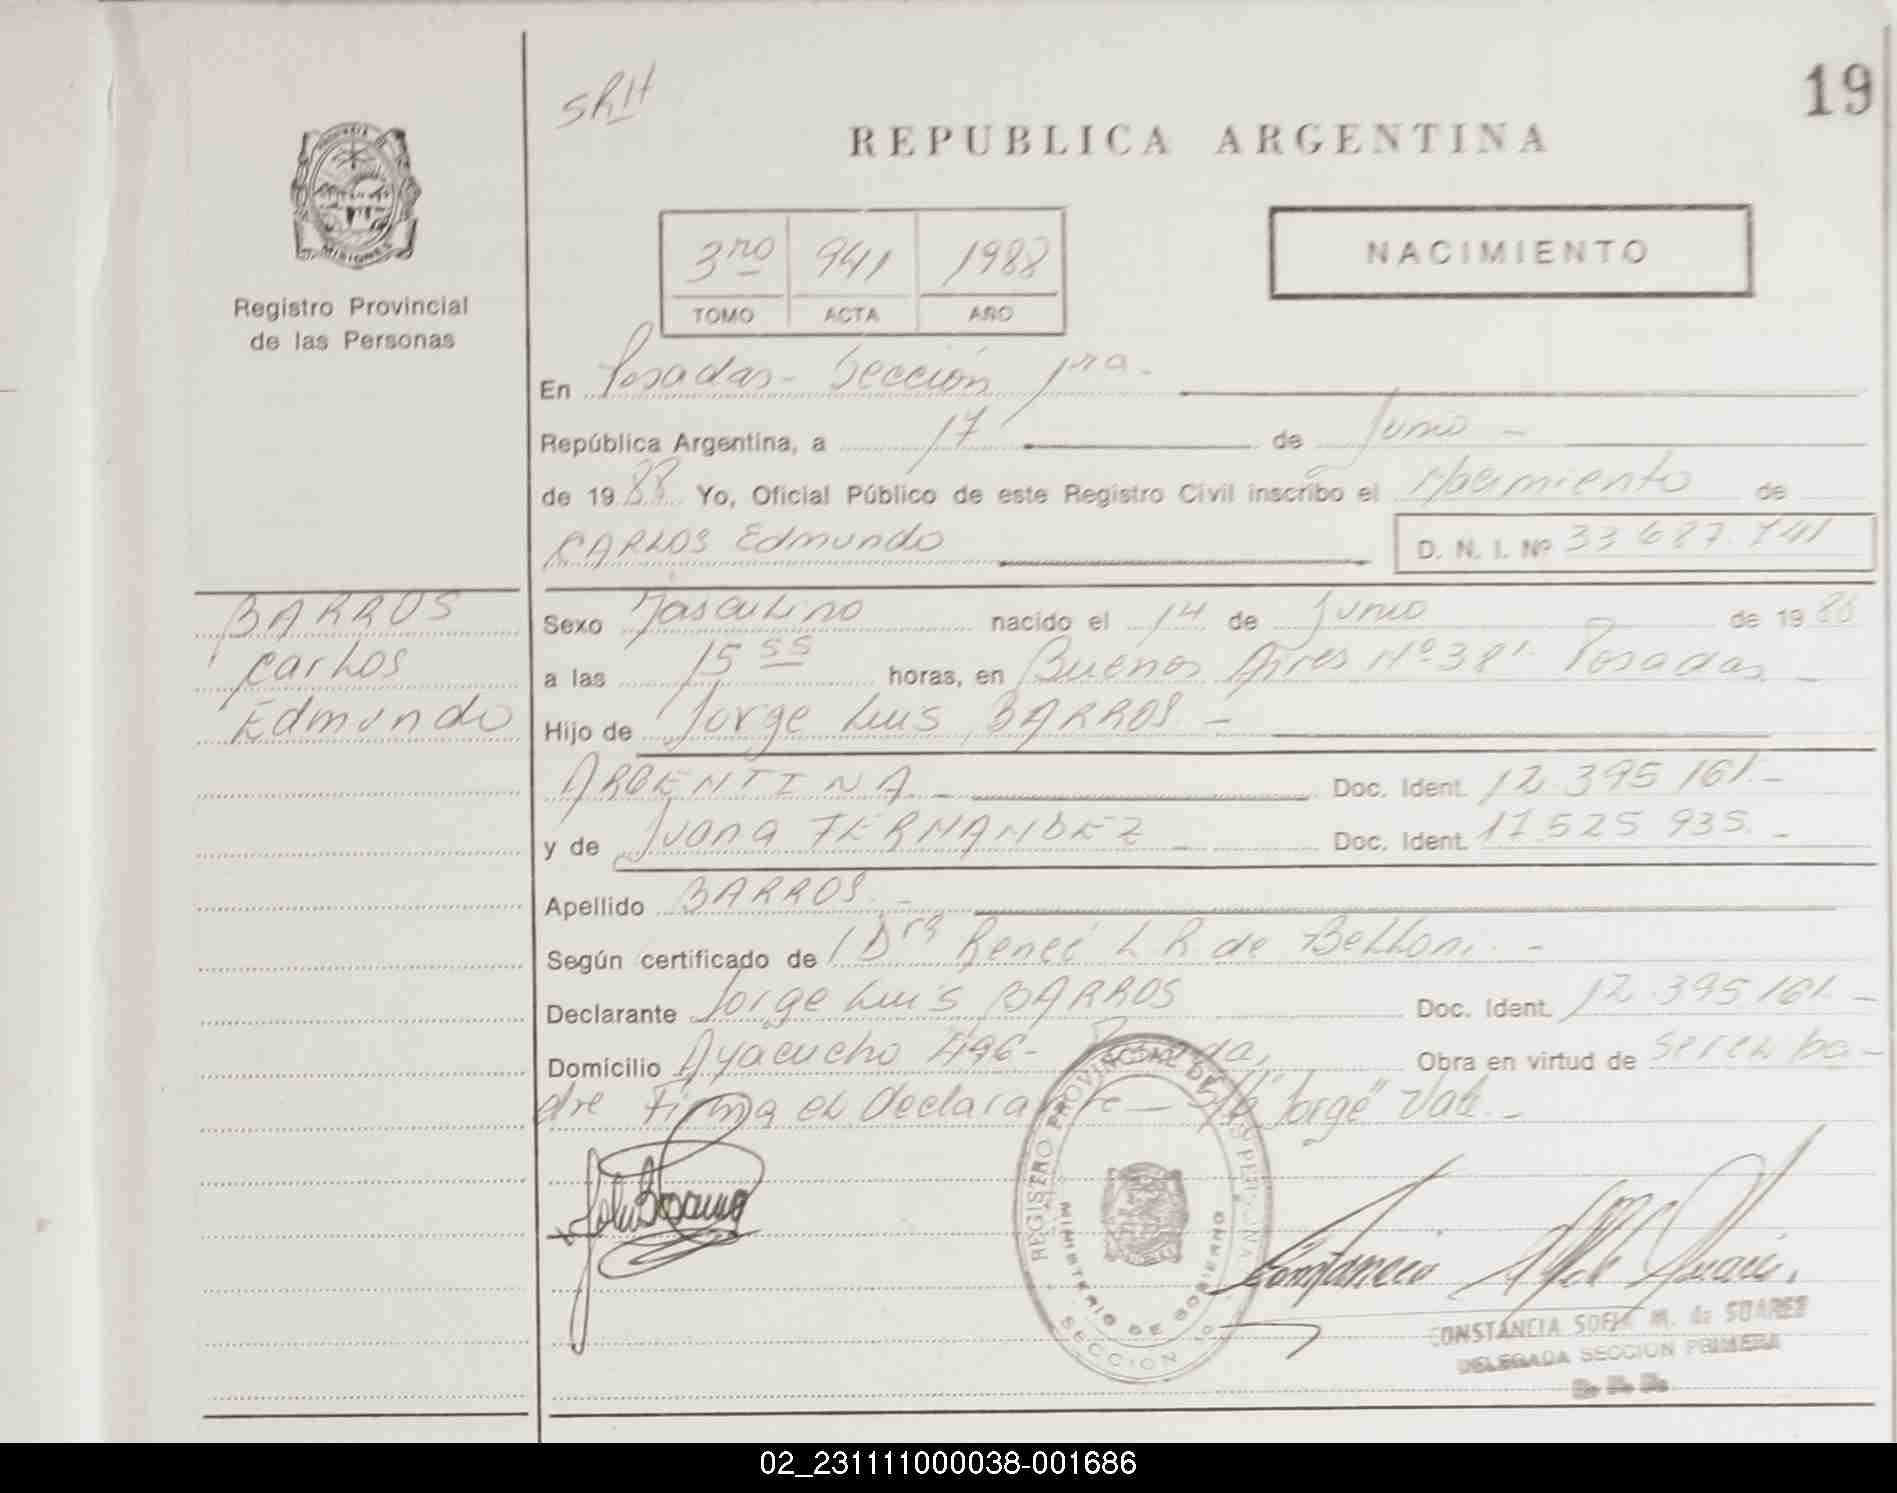 19
SRH
REPUBLICA ARGENTINA
MISIONES
Registro Provincial
de las Personas
3ro 941 1988
TOMO ACTA AÑO
NACIMIENTO
En Posadas - Sección 1ra.-
República Argentina, a 17 de Junio -
de 1988 Yo, Oficial Público de este Registro Civil inscribo el Nacimiento de
CARLOS Edmundo D. N. I. Nº 33 687. 741
BARROS
Carlos
Edmundo
Sexo Masculino nacido el 14 de Junio de 1988
a las 15 55 horas, en Buenos Aires Nº 381. Posadas -
Hijo de Jorge Luis BARROS -
ARGENTINA - Doc. Ident. 12.395 161.-
y de Juana FERNANDEZ - Doc. Ident. 17 525 935. -
Apellido BARROS. -
Según certificado de Dra Reneé L R de Belloni. -
Declarante Jorge Luis BARROS Doc. Ident. 12.395161. -
Domicilio Ayacucho 496 - Posadas, Obra en virtud de ser el pa-
dre Firma el Declarante - S/b "Jorge" Vale. -
REGISTRO PROVINCIAL DE LAS PERSONAS
MINISTERIO DE GOBIERNO
SECCION 1a
CONSTANCIA SOFIA M. de SUARES
DELEGADA SECCION PRIMERA
02_231111000038-001686